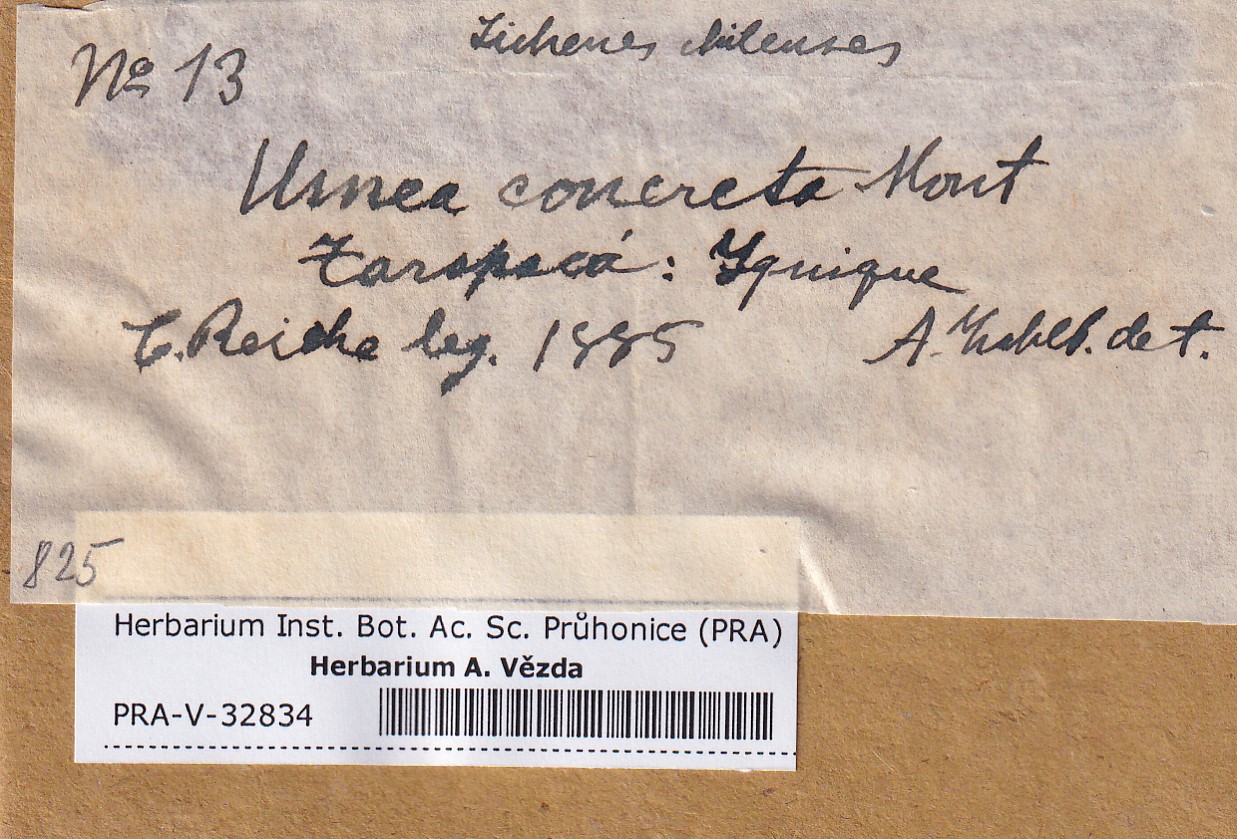 Lichenes chilenses
No 13
Usnea concreta Mont
Tarapacá: Yquique
C. Reiche leg. 1885 A. Zahlb. det.
825
Herbarium Inst. Bot. Ac. Sc. Průhonice (PRA)
Herbarium A. Vězda
PRA-V-32834